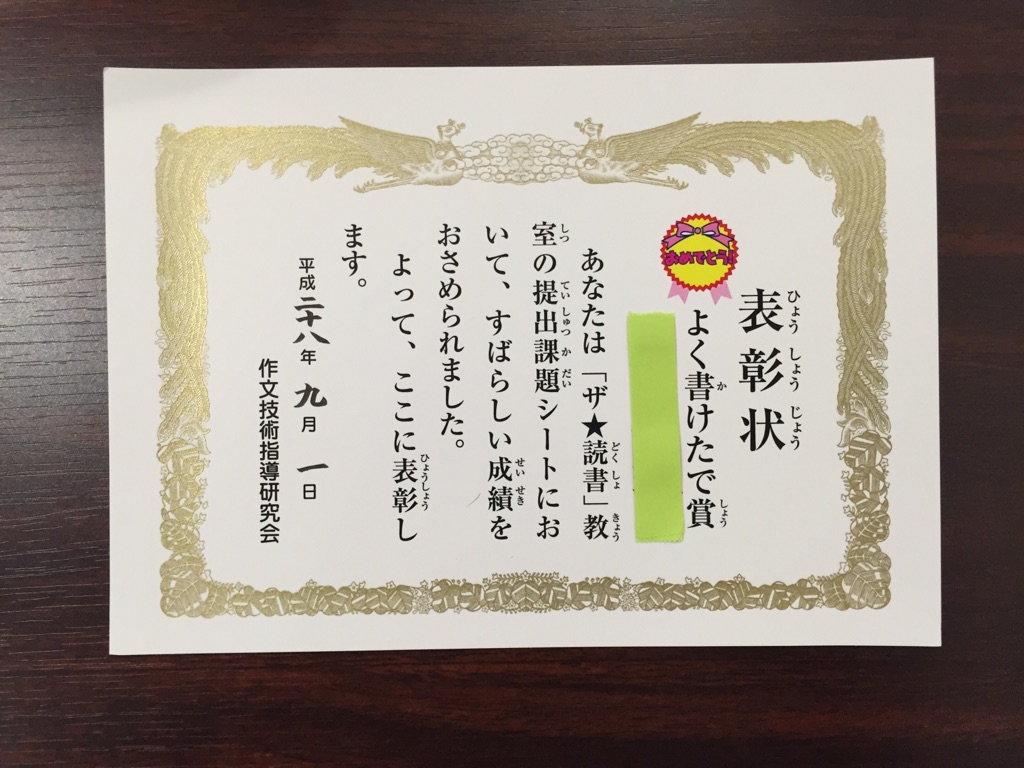 表彰状
おめでとう!
よく書けたで賞
あなたは「ザ★読書」教
室の提出課題シートにお
いて、すばらしい成績を
おさめられました。
よって、ここに表彰し
ます。
平成二十八年九月一日
作文技術指導研究会